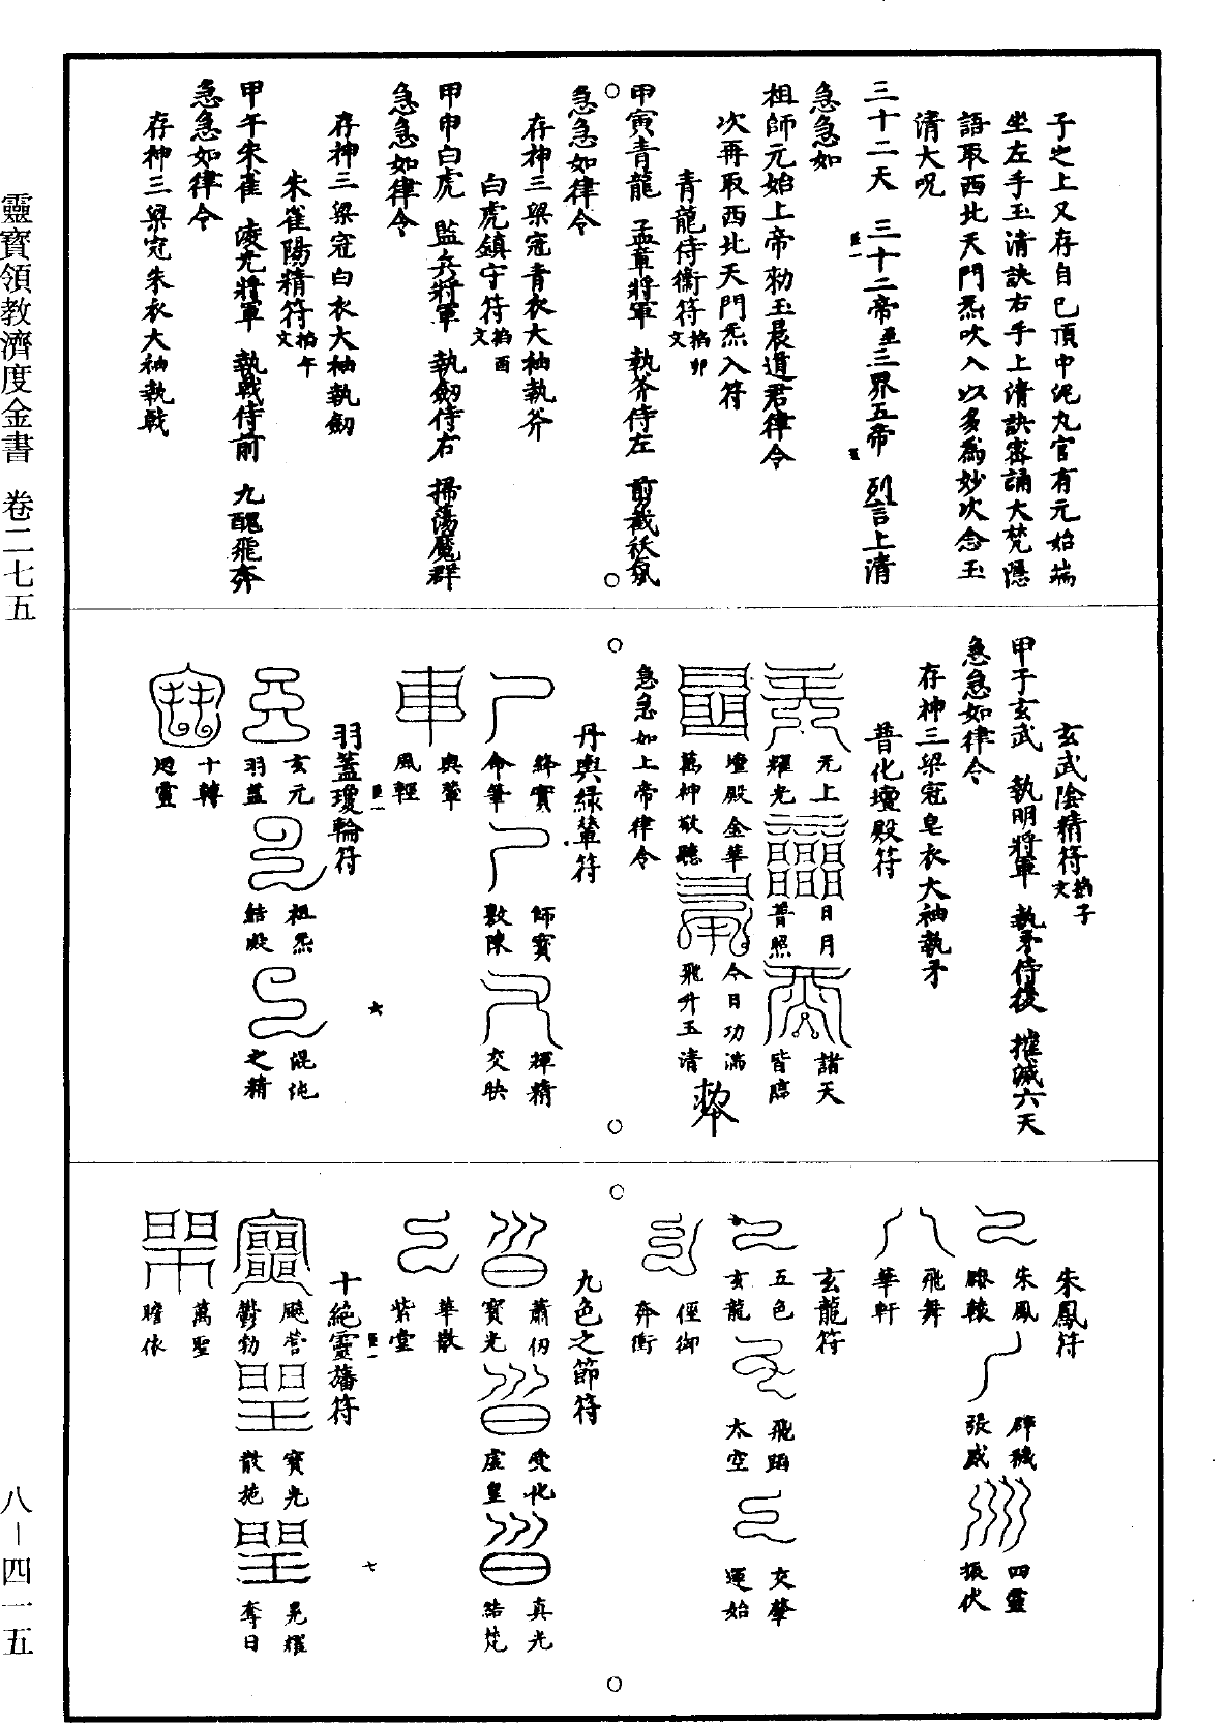 子之上又存自己頂中泥丸宮有元始端
坐左手玉清訣右手上清訣密誦大梵隱
語取西北天門炁吹入以多爲妙次念玉
清大呪
三十二天　三十二帝　三界五帝　列言上清
急急如
祖師元始上帝勑玉晨道君律令
次再取西北天門炁入符
青龍侍衞符掐卯文
甲寅青龍　孟章將軍　執斧侍左　剪截祅氛
急急如律令
存神三梁冠青衣大袖執斧
白虎鎮守符掐酉文
甲申白虎　監兵將軍　執劒侍右　掃蕩魔群
急急如律令
存神三梁冠白衣大袖執劒
朱雀陽精符掐午文
甲午朱雀　凌光將軍　執戟侍前　九醜飛奔
急急如律令
存神三梁冠朱衣大袖執戟
玄武陰精符掐子文
甲子玄武　執明將軍　執矛侍後　摧滅六天
急急如律令
存神三梁冠皂衣大袖執矛
普化壇殿符
元上耀光　日月普照　諸天皆臨
壇殿金華萬神敬聽　今日功滿飛升玉清　勑
急急如上帝律令
丹輿綠輦符
絳實命筆　師實敷陳　揮精交映
輿輦風輕
羽蓋瓊輪符
玄元羽蓋　祖炁結殿　混沌之精
十轉迴靈
六
朱鳳符
朱鳳　辟穢張威　四靈振伏
飛舞華軒
玄龍符
五色玄龍　飛蹈太空　交肇運始
徑御奔衝
九色之節符
蕭仍寶光　受化虛皇　真光結梵
華散紫堂
十絕靈旛符
飈營鬱勃　寶光散施　晃耀奪日
萬聖瞻依
七
靈寶領教濟度金書　卷二七五
八－四一五